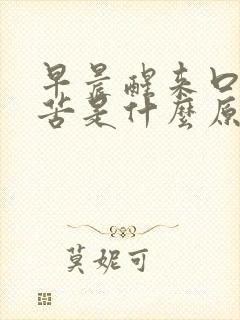 早晨醒来口
苦是什麼原
莫妮可